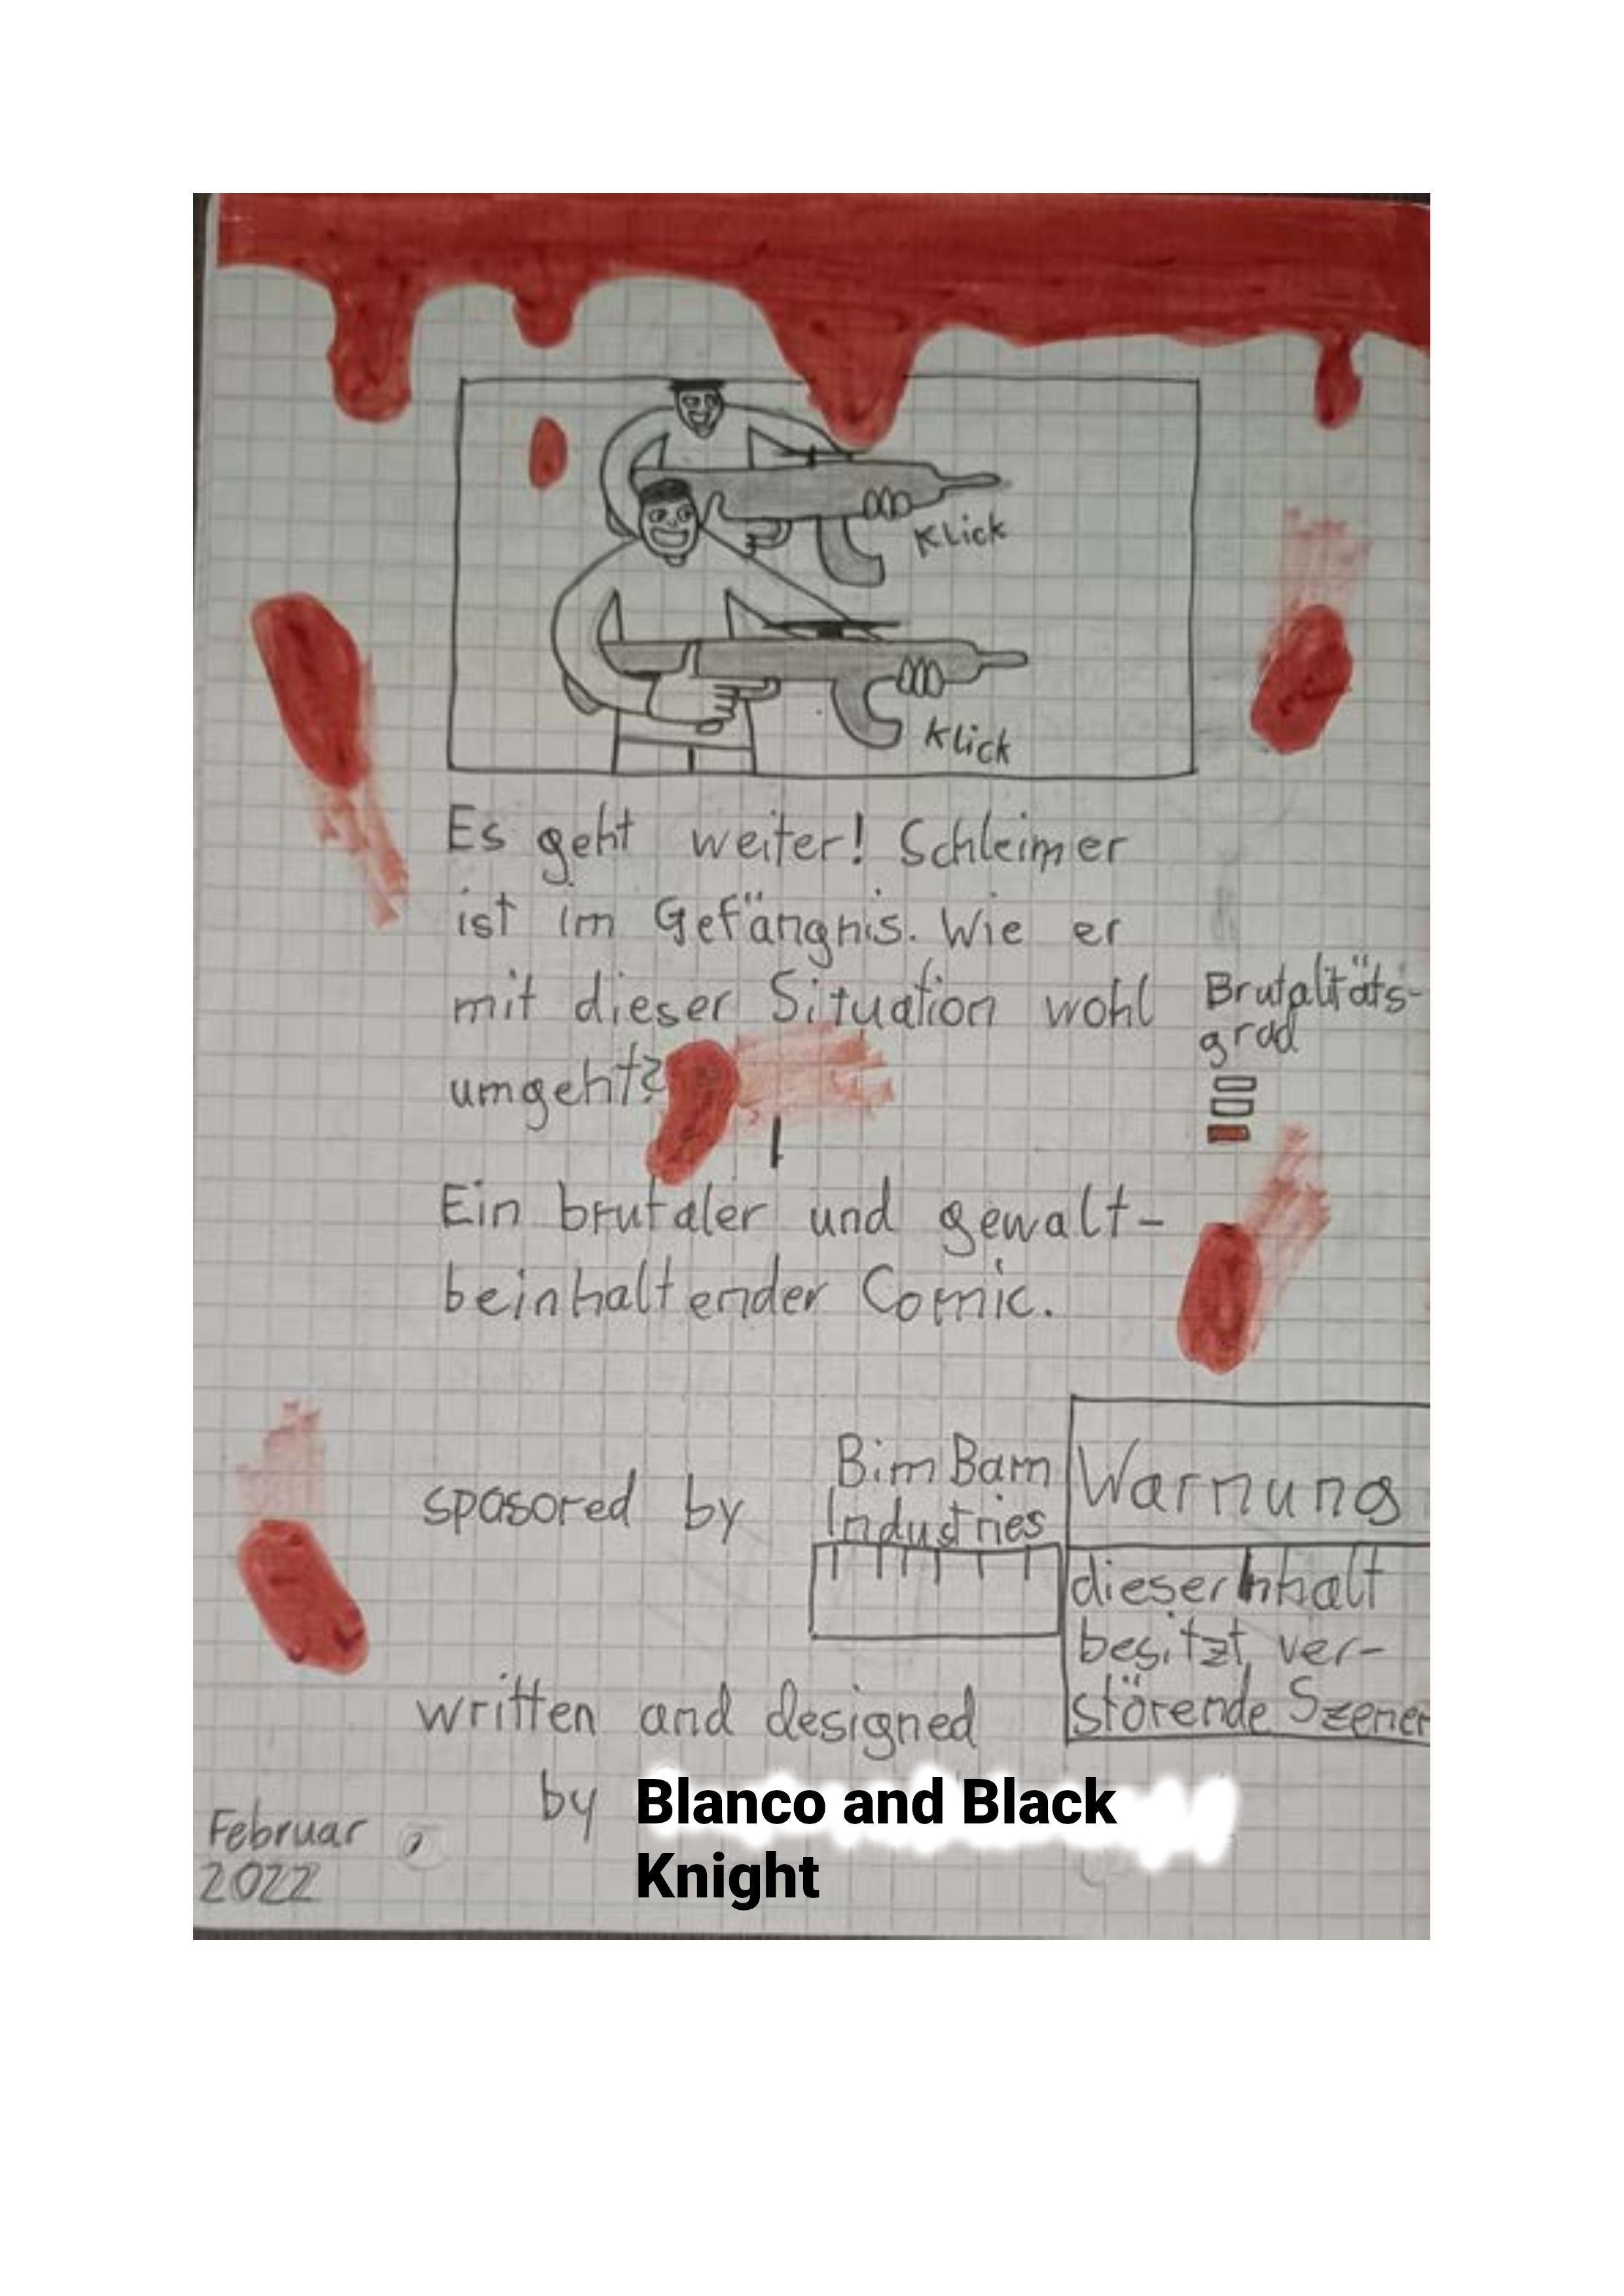 Klick
Klick
Es geht weiter! Schleimer
ist im Gefängnis. Wie er
mit dieser Situation wohl
umgeht?
Brutalitäts-
grad
Ein brutaler und gewalt-
beinhaltender Comic.
spasored by
Bim Bam
Industries
Warnung
dieser Inhalt
besitzt ver-
störende Szenen
written and designed
by Blanco and Black
Knight
Februar
2022